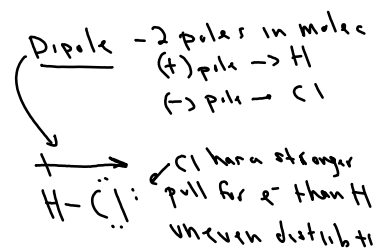 Dipole - 2 poles in molec
(+) pole -> H
(-) pole - Cl
Cl has a stronger
H-Cl: pull for e- than H
uneven distibt